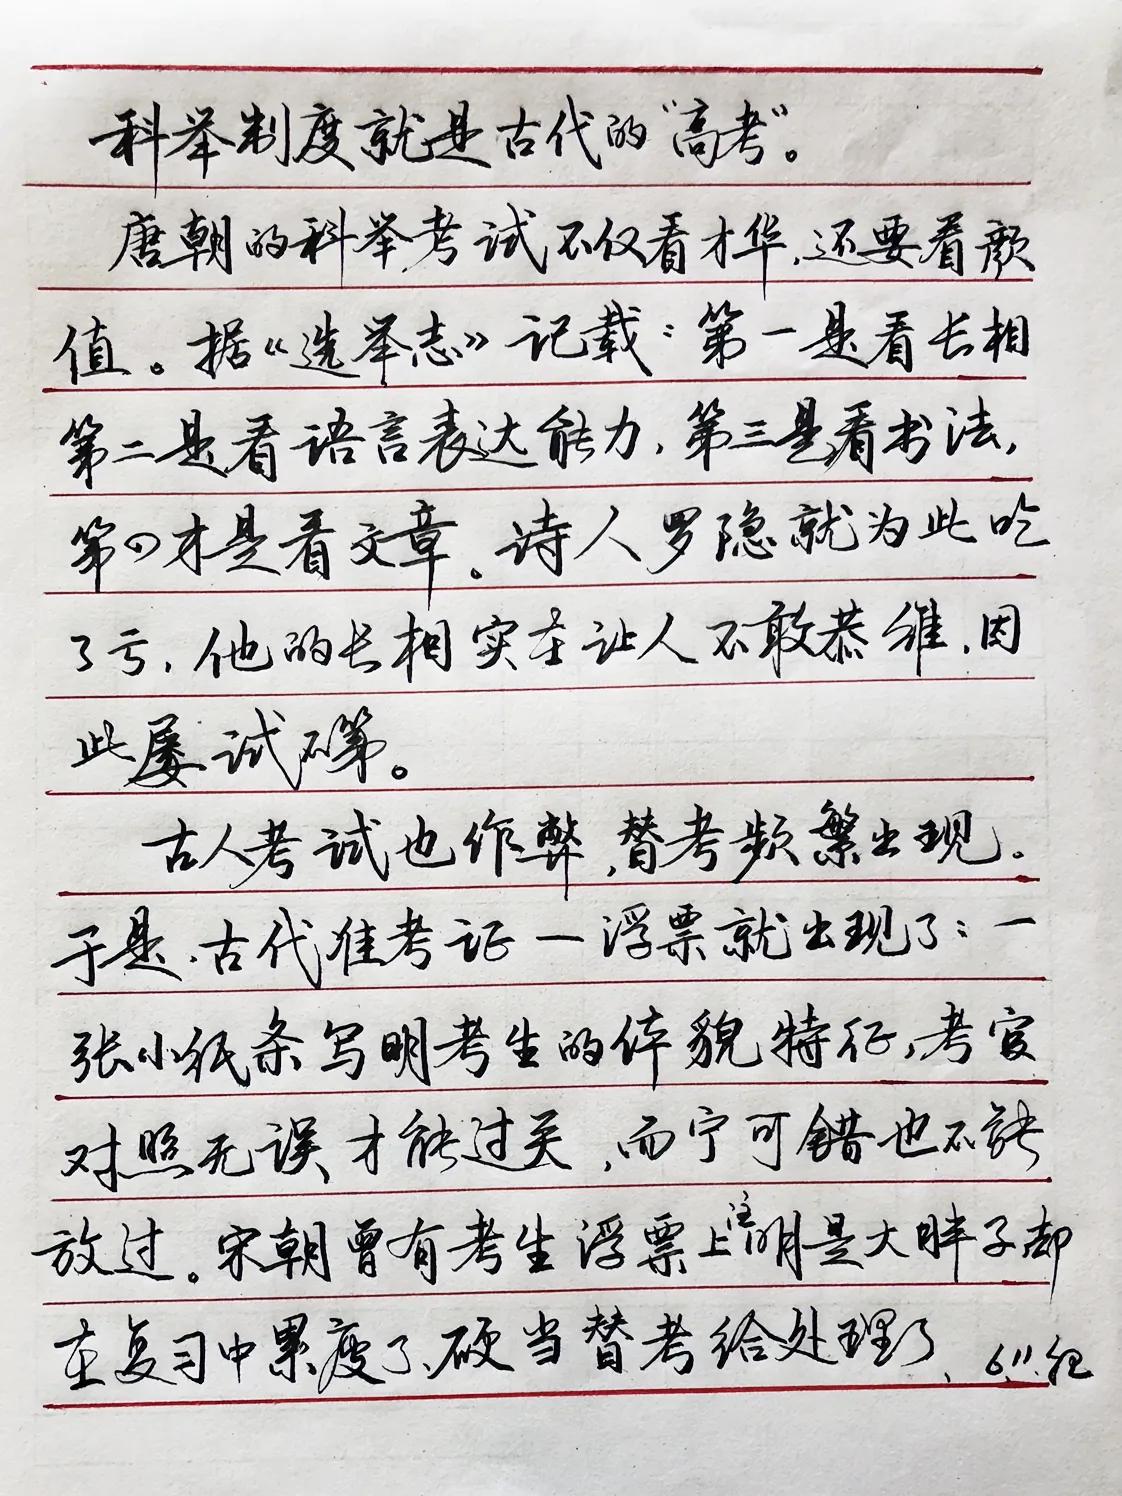 科举制度就是古代的“高考”。
唐朝的科举考试不仅看才华,还要看颜
值。据《选举志》记载:第一是看长相
第二是看语言表达能力,第三是看书法,
第四才是看文章。诗人罗隐就为此吃
了亏,他的长相实在让人不敢恭维,因
此屡试不第。
古人考试也作弊,替考频繁出现。
于是,古代准考证一浮票就出现了:一
张小纸条写明考生的体貌特征,考官
对照无误才能过关,而宁可错也不能
放过。宋朝曾有考生浮票上注明是大胖子,却
在复习中累瘦了,硬当替考给处理了、